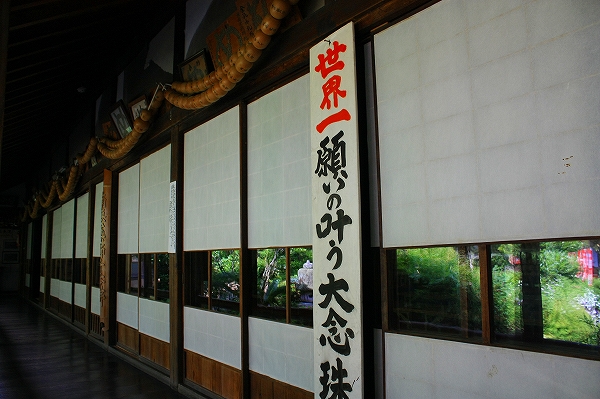 世界一願いの叶う大念珠